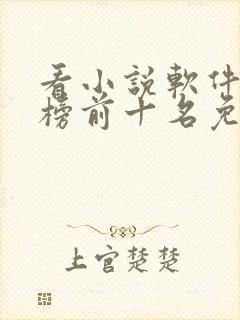 看小說軟件
榜前十名免
上官楚楚